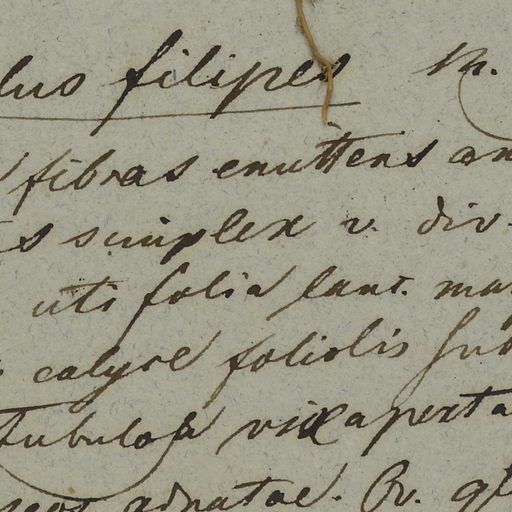 lus filipes M.
fibras emittens an
s simplex v. div.
uti folia lanc. mar
calyce foliolis sub
tubulosa vix aperta
adnatae. Cr. gl